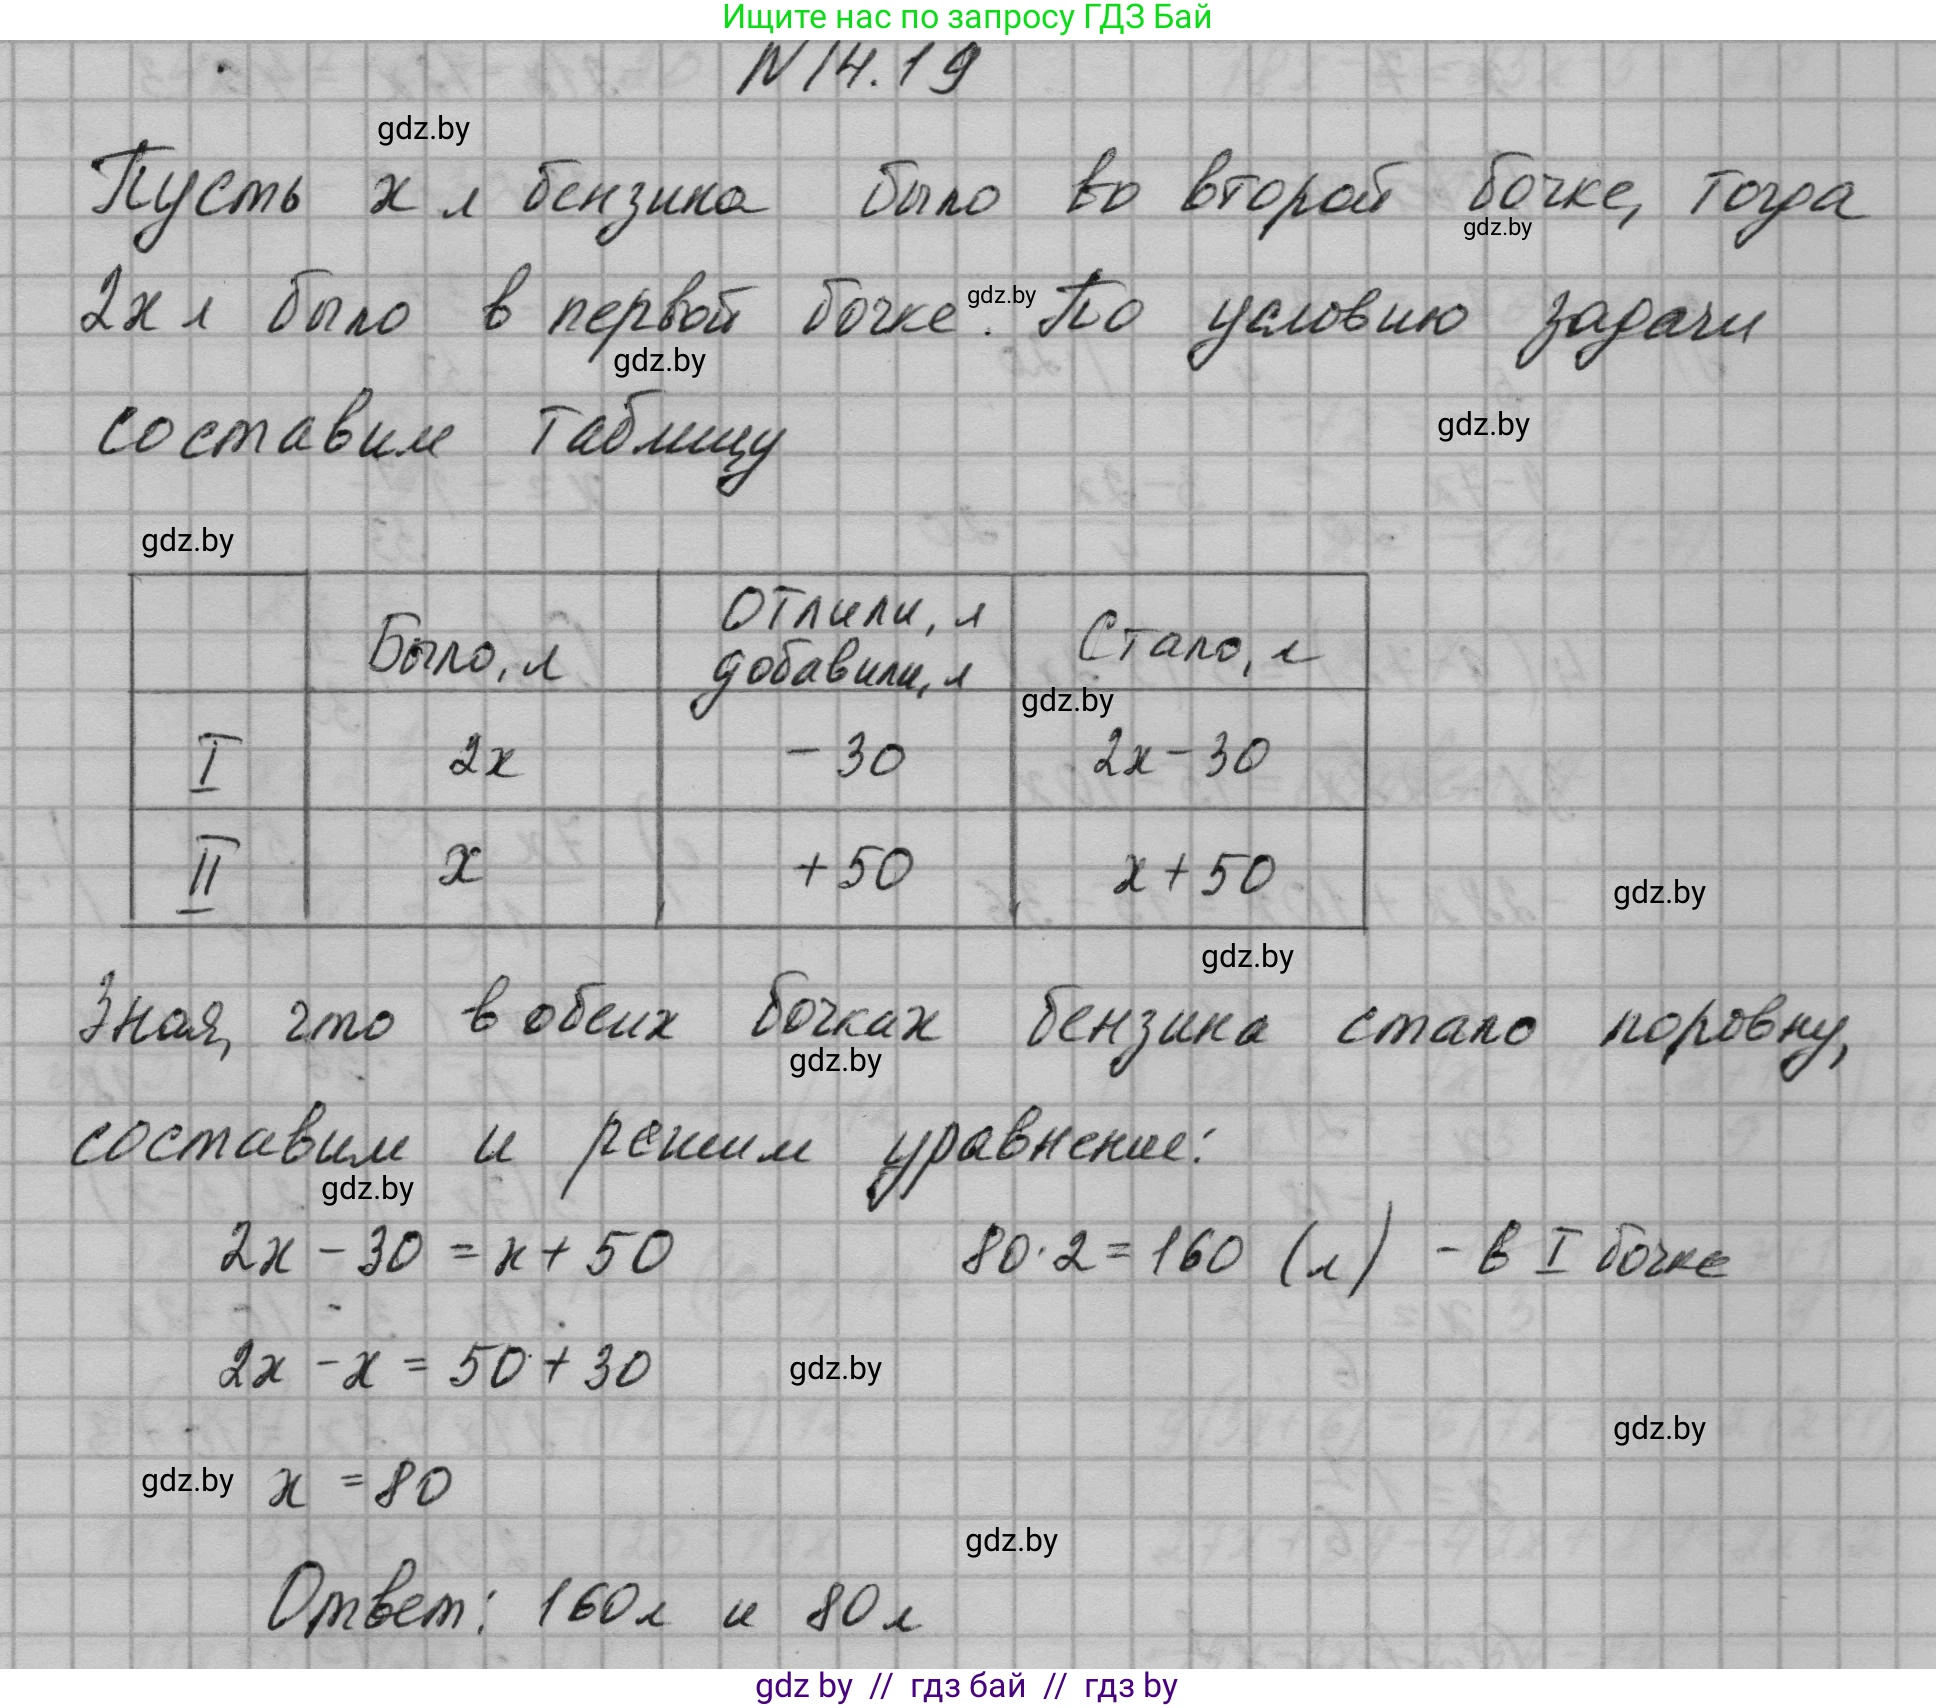 Ищите нас по запросу ГДЗ Бай
N 14.19
gdz.by
Пусть x л бензина было во второй бочке, тогда
gdz.by
2x л было в первой бочке. По условию задачи
gdz.by
gdz.by
составим таблицу
gdz.by
gdz.by
Было, л
Отлили, л
добавили, л
Стало, л
gdz.by
I 2x - 30 2x - 30
II x + 50 x + 50
gdz.by
gdz.by
Зная, что в обеих бочках бензина стало поровну,
gdz.by
составим и решим уравнение:
gdz.by
2x - 30 = x + 50 80 · 2 = 160 (л) - в I бочке
2x - x = 50 + 30
gdz.by
gdz.by
gdz.by
x = 80
gdz.by
Ответ: 160 л и 80 л
gdz by // гдз бай // гдз by